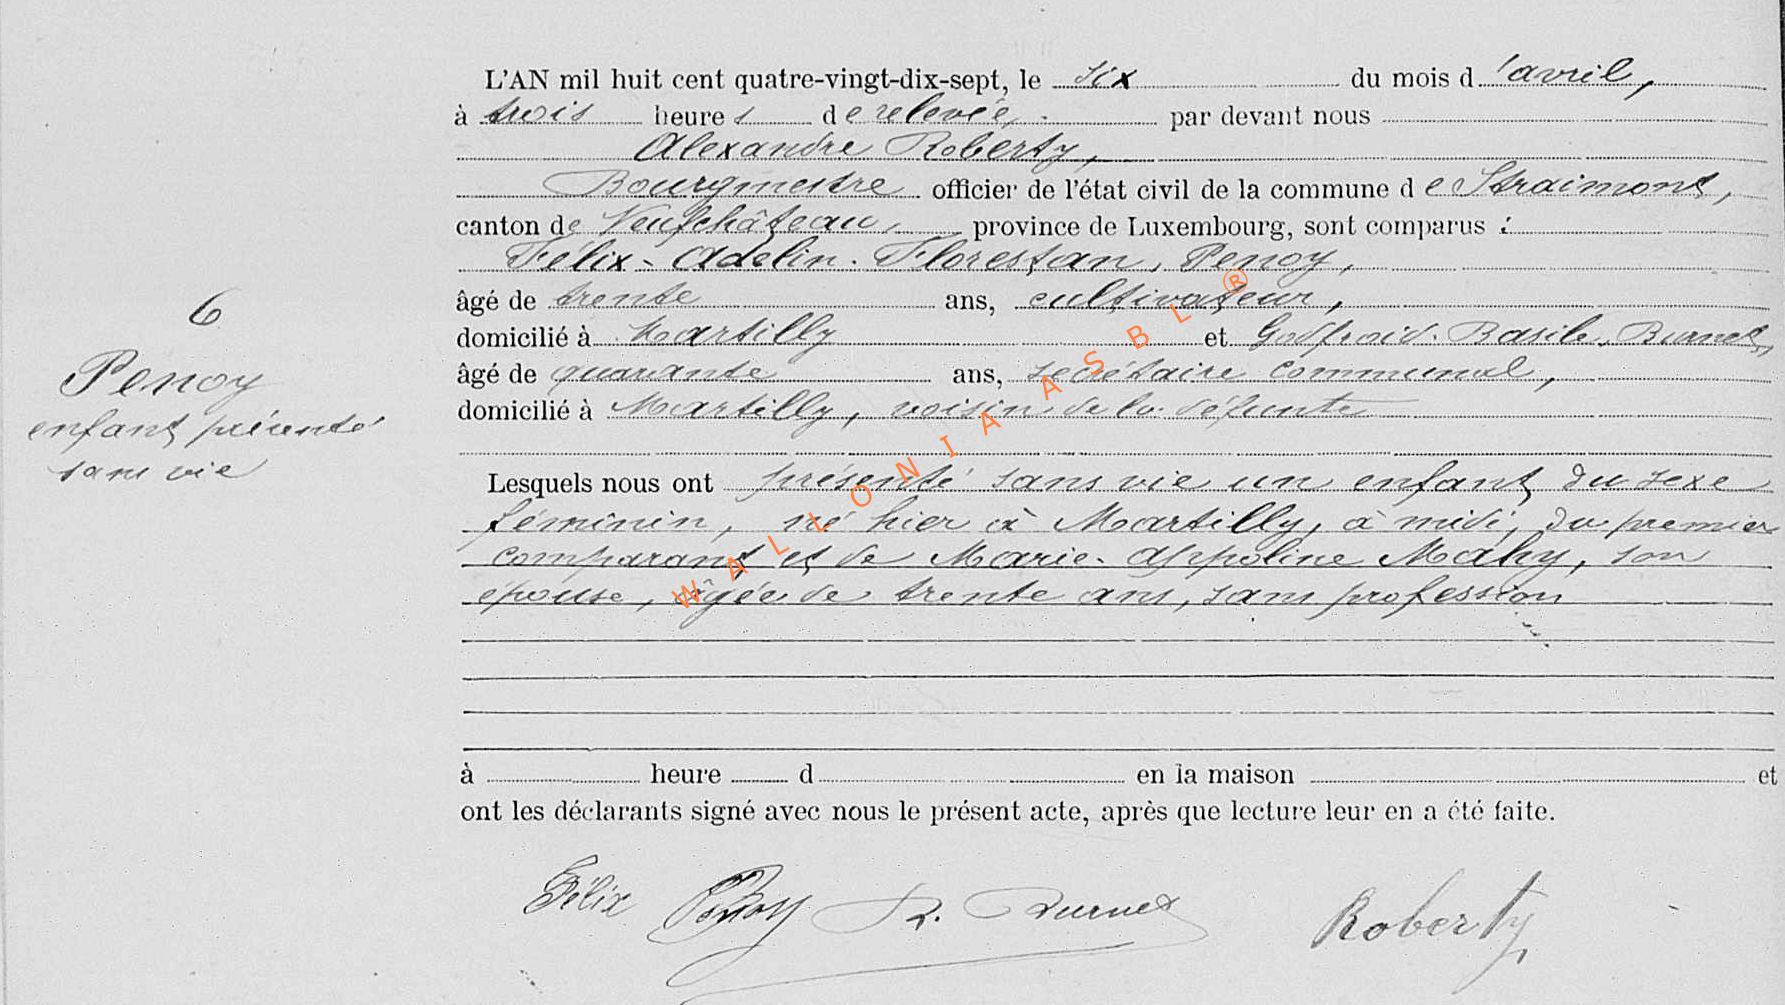 6
Penoy
enfant présenté
sans vie
L'AN mil huit cent quatre-vingt-dix-sept, le six du mois d'avril,
à trois heures de relevée, par devant nous
Alexandre Roberty,
Bourgmestre officier de l'état civil de la commune de Straimont,
canton de Neufchâteau, province de Luxembourg, sont comparus :
Félix-Adelin-Florestan, Penoy,
âgé de trente ans, cultivateur,
domicilié à Martilly et Godfroid-Basile Burnet,
âgé de quarante ans, secrétaire communal,
domicilié à Martilly, voisin de la défunte
Lesquels nous ont présenté sans vie un enfant du sexe
féminin, né hier à Martilly, à midi, du premier
comparant et de Marie-Appoline Mahy, son
épouse, âgée de trente ans, sans profession
à heure d en la maison et
ont les déclarants signé avec nous le présent acte, après que lecture leur en a été faite.
Félix Penoy B. Burnet Roberty
WALLONIA ASBL ®